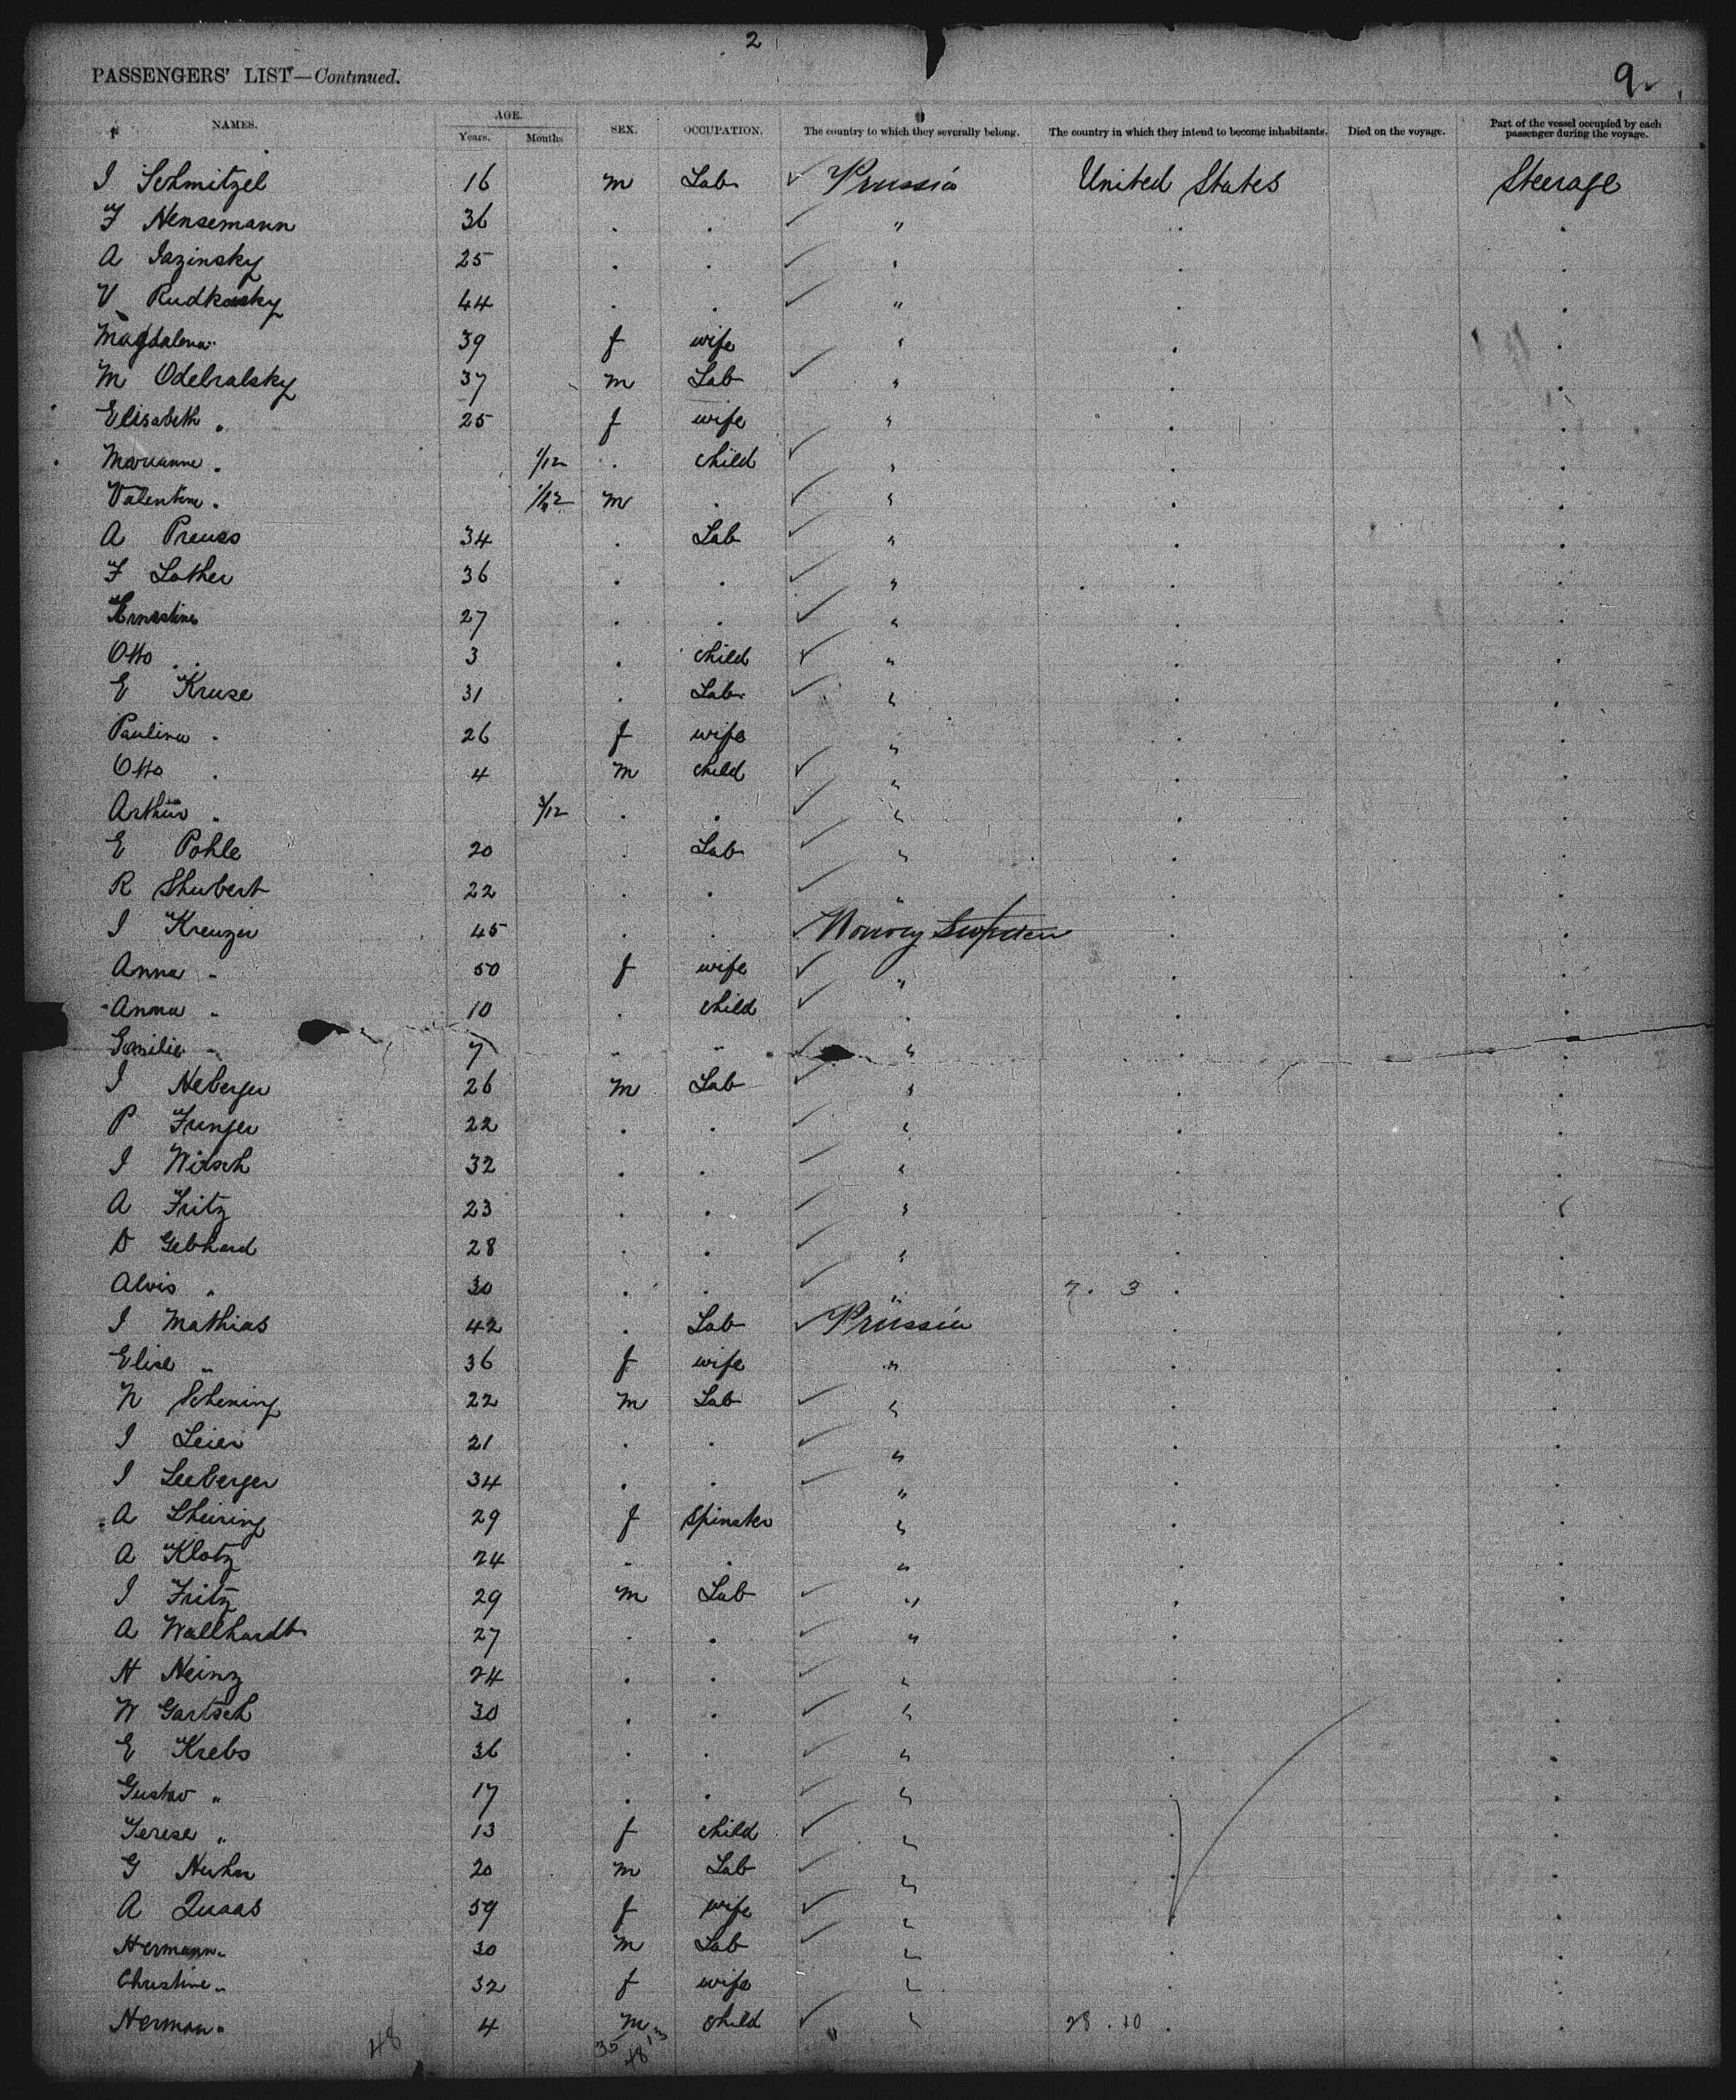 2
PASSENGERS' LIST—Continued.
9
NAMES. AGE. Years. Months SEX. OCCUPATION. The country to which they severally belong. The country in which they intend to become inhabitants. Died on the voyage. Part of the vessel occupied by each passenger during the voyage.
I Schmitzel 16 m Lab ✓ Prussia United States Steerage
F Hensemann 36 . . ✓ " . .
A Jazinsky 25 . . ✓ " . .
V Rudkowsky 44 . . ✓ " . .
Magdalena " 39 f wife " . .
M Odebralsky 37 m Lab ✓ " . .
Elisabeth " 25 f wife " . .
Marianne " 1/12 . child ✓ " . .
Valentin " 1/12 m . ✓ " . .
A Preuss 34 . Lab ✓ " . .
F Lother 36 . . ✓ " . .
Ernestine 27 . . ✓ " . .
Otto " 3 . child ✓ " . .
E Kruse 31 . Lab ✓ " . .
Paulina " 26 f wife " . .
Otto " 4 m child ✓ " . .
Arthur " 3/12 . . ✓ " . .
E Pohle 20 . Lab ✓ " . .
R Shubert 22 . . ✓ " . .
I Kreuzer 45 . . ✓ . .
Anna " 50 f wife ✓ " . .
Anna " 10 . child ✓ " . .
Emilie " 7 " " ✓ " . .
I Neberger 26 m Lab ✓ " . .
P Funger 22 . . ✓ " . .
I Wirsch 32 . . ✓ " . .
A Fritz 23 . . ✓ " . .
D Gebhard 28 . . ✓ " . .
Alvis " 30 . . ✓ " 7. 3 . .
I Mathias 42 . Lab ✓ Prussia . .
Elise " 36 f wife " . .
N Schening 22 m Lab ✓ " . .
I Leier 21 . . ✓ " . .
I Leeberger 34 . . ✓ " . .
A Sheiring 29 f Spinster " . .
A Klotz 24 . . " . .
I Fritz 29 m Lab ✓ " . .
A Wallhardt 27 . . ✓ " . .
H Heinz 24 . . ✓ " . .
W Gartsch 30 . . ✓ " . .
E Krebs 36 . . ✓ " . .
Gustav " 17 . . ✓ " . .
Terese " 13 f child ✓ " . .
G 20 m Lab ✓ " . .
A Quaas 59 f wife ✓ " . .
Hermann " 30 m Lab ✓ " . .
Christine " 32 f wife " . .
Herman " 4 m child ✓ " 28. 10 . .
48 35 13
48